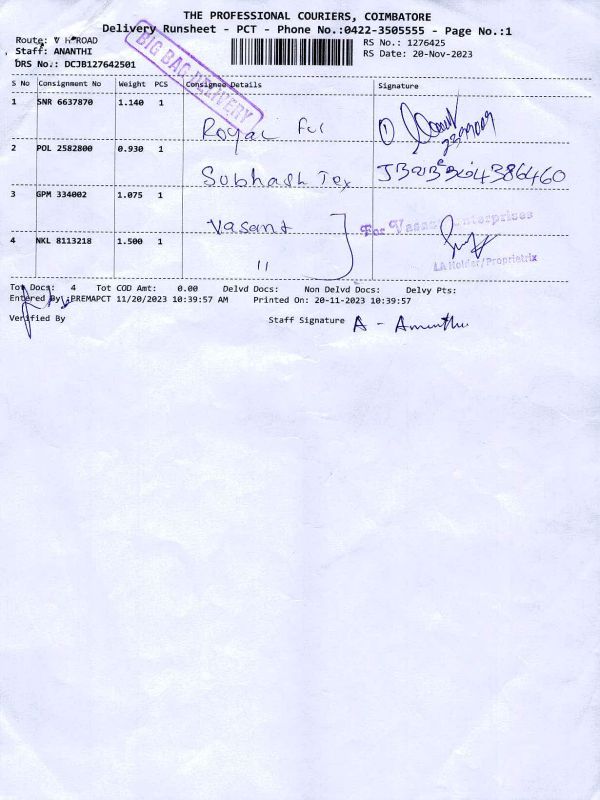 THE PROFESSIONAL COURIERS, COIMBATORE
Delivery Runsheet - PCT - Phone No.:0422-3505555 - Page No.:1
Route: V H ROAD
RS No.: 1276425
Staff: ANANTHI
RS Date: 20-Nov-2023
DRS No.: DCJB127642501
BIG BAG DELIVERY
S No Consignment No Weight PCS Consignee Details Signature
1 SNR 6637870 1.140 1
Royal
2 POL 2582800 0.930 1
Subhash Tex 4386460
3 GPM 334002 1.075 1
Vasant
For Vasant Enterprises
4 NKL 8113218 1.500 1
"
LA Holder/Proprietrix
Tot Docs: 4 Tot COD Amt: 0.00 Delvd Docs: Non Delvd Docs: Delvy Pts:
Entered By:PREMAPCT 11/20/2023 10:39:57 AM Printed On: 20-11-2023 10:39:57
Verified By Staff Signature A - Ananthi